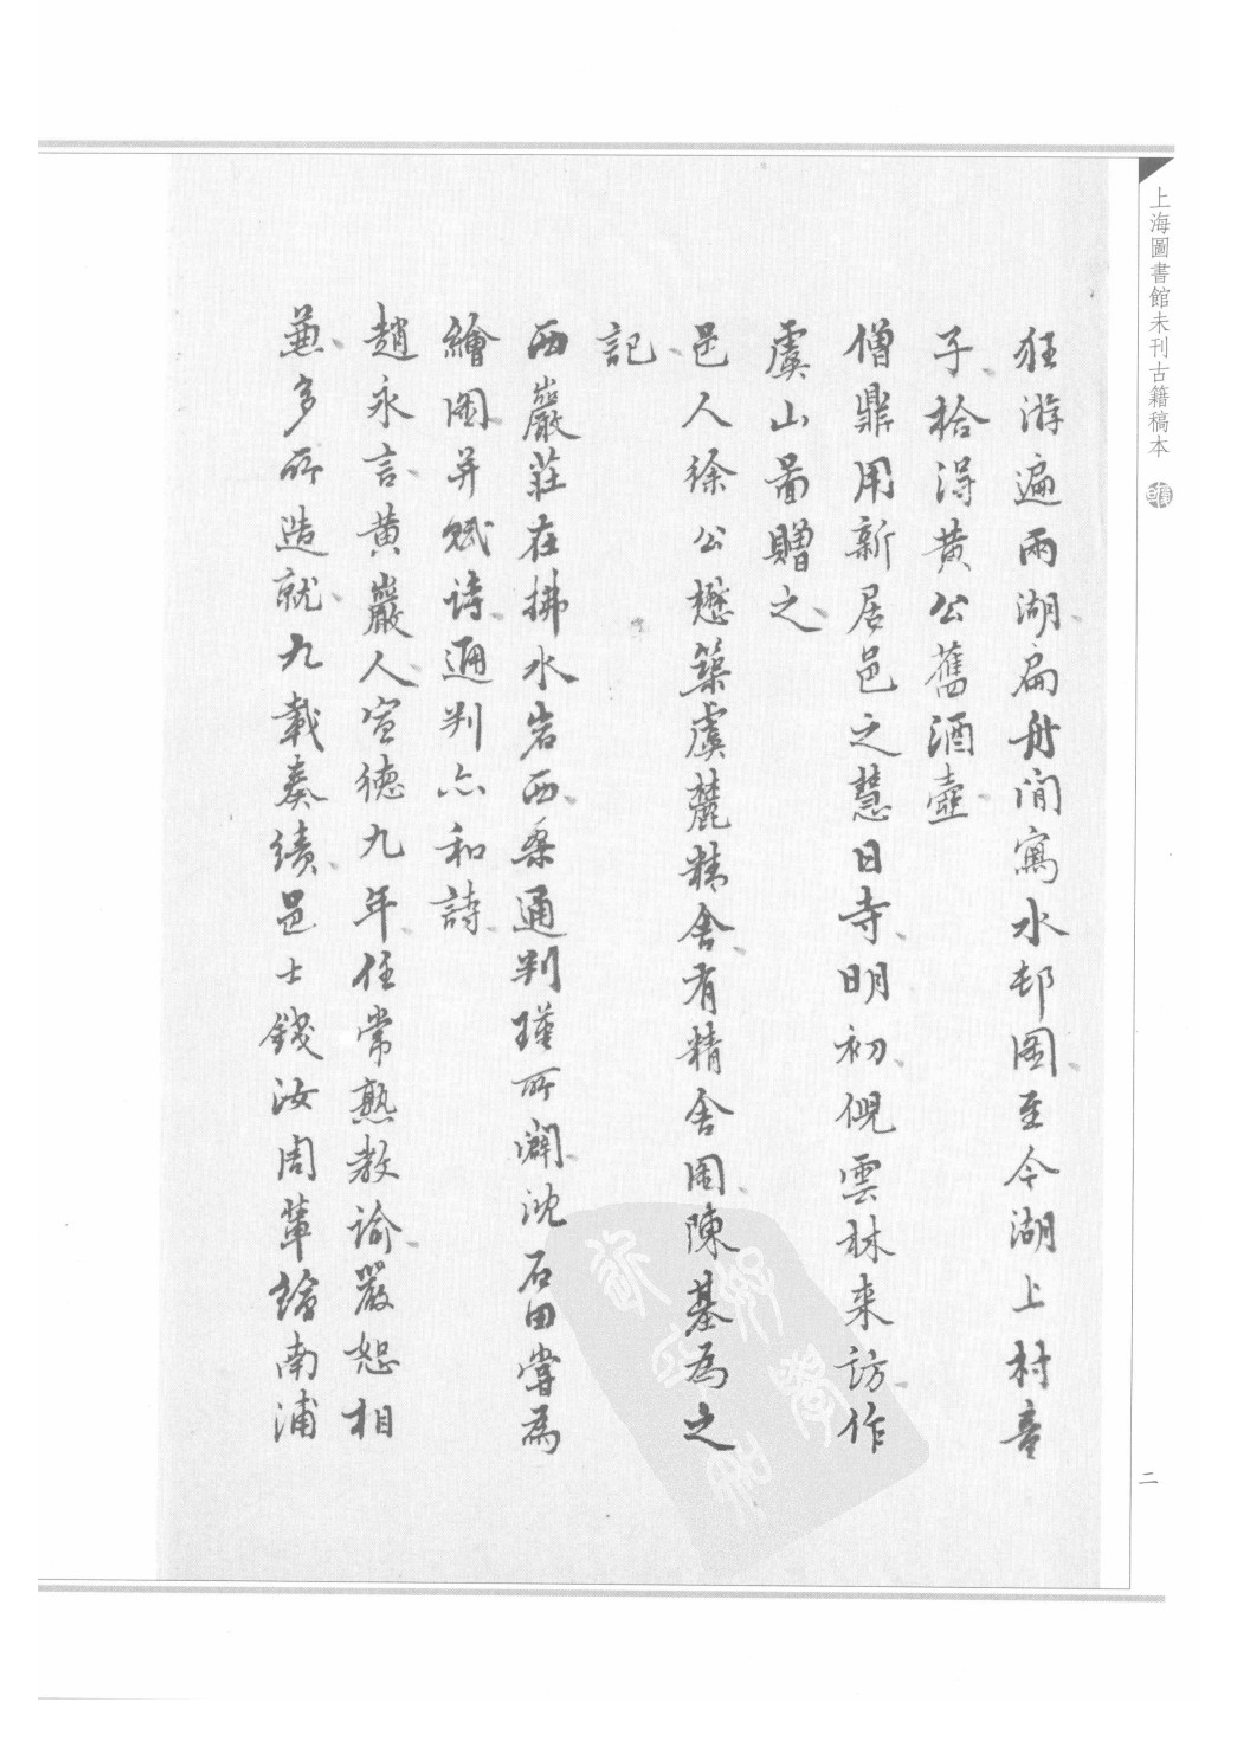 上海圖書館未刊古籍稿本
狂游遍兩湖扁舟閒寫水邨圖至今湖上村童
子拾得黄公舊酒壺
僧鼎用新居邑之慧日寺明初倪雲林来訪作
虞山啚贈之
邑人徐公懋築虞麓精舍有精舍圖陳基為之
記
西巖莊在拂水岩西桑通判瑾所闢沈石田嘗為
繪圖并賦诗通判亦和詩
趙永言黄巖人宣德九年任常熟教諭嚴恕相
兼多所造就九載奏績邑士錢汝周輩繪南浦
二